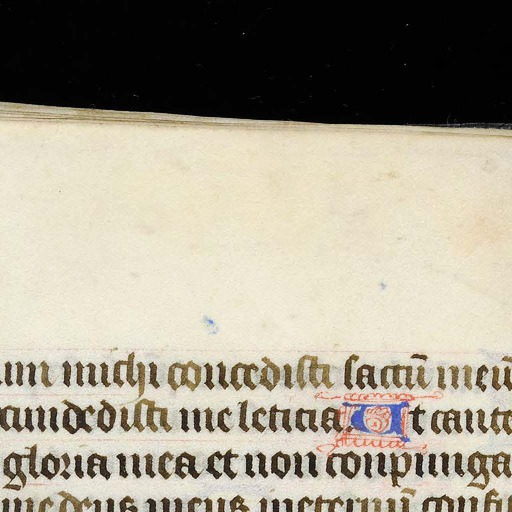 um michi concedisti sactū meū
cundedisti me leticia. Ut cante
gloria mea et non conpunga
me deus meus ineternū confi